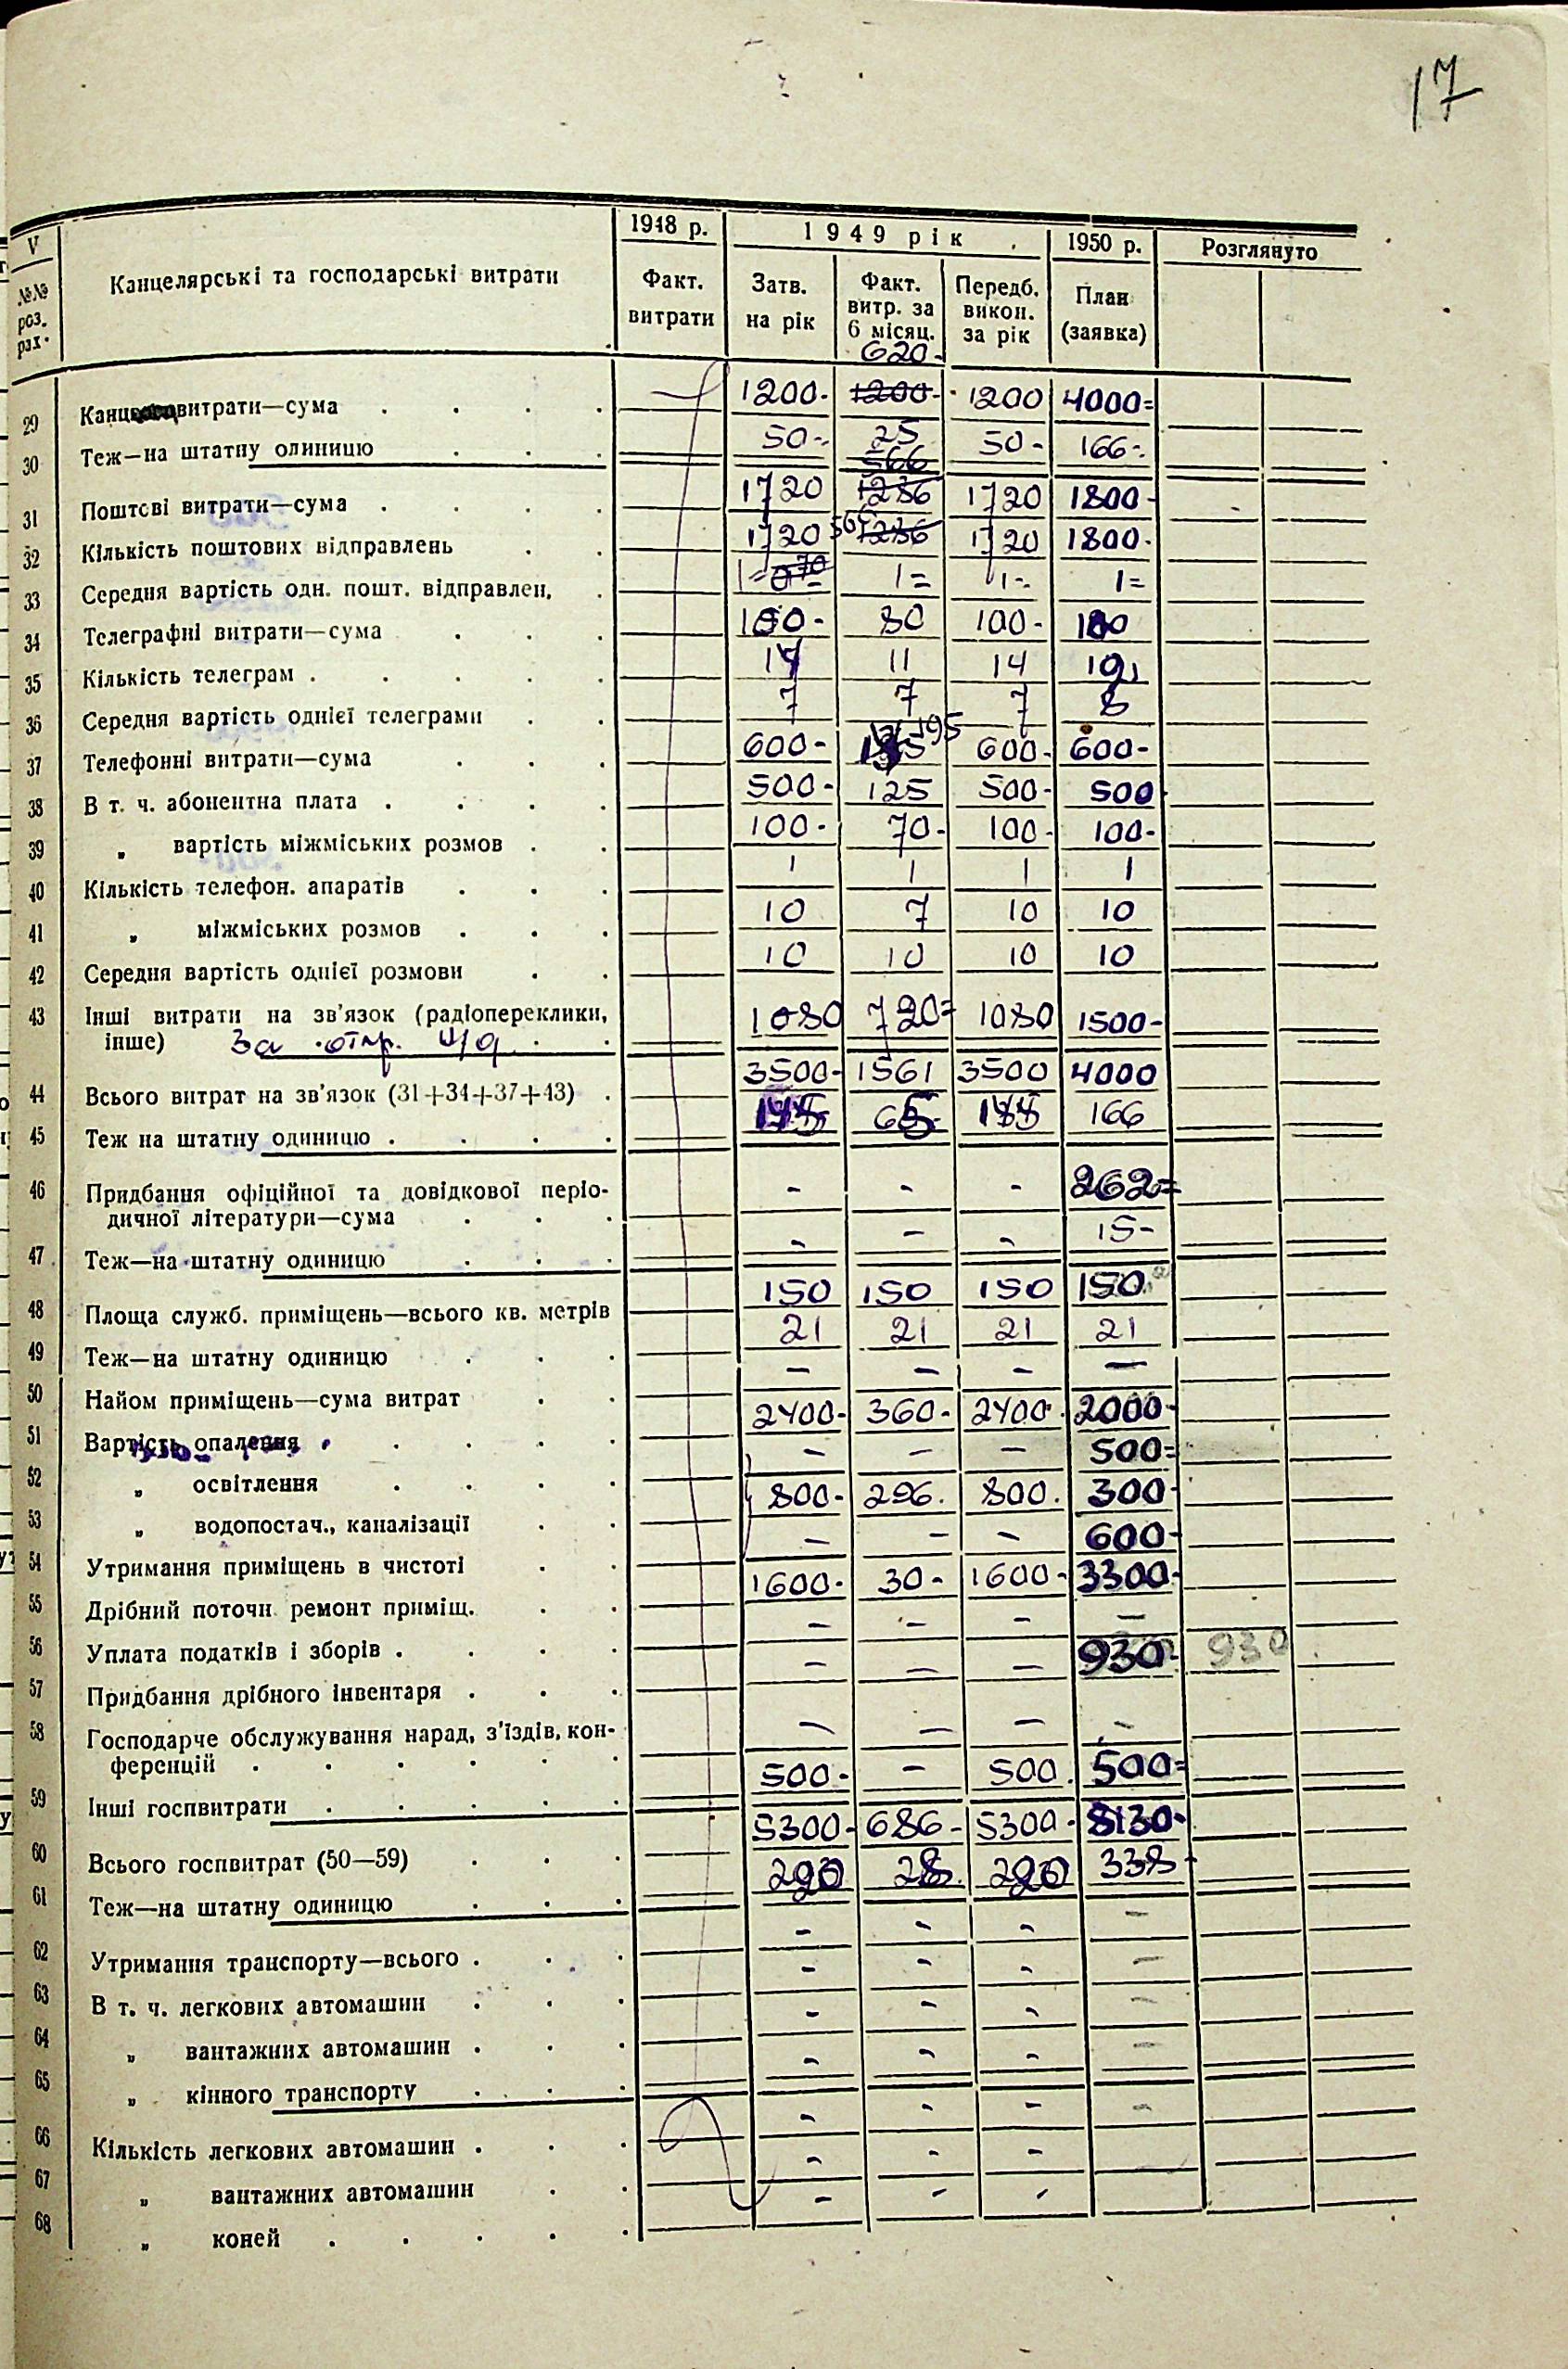 17
V
№№ роз. рах.
Канцелярські та господарські витрати
1948 р.
1949 рік
1950 р.
Розглянуто
Факт. витрати
Затв. на рік
Факт. витр. за 6 місяц.
Передб. викон. за рік
План (заявка)
620-
29 Канц витрати—сума 1200- 1200- 1200 4000=
30 Теж—на штатну одиницю 50- 25 50- 166-
566
31 Поштові витрати—сума 1720 1236 1720 1800-
32 Кількість поштових відправлень 1720 566 1236 1720 1800-
33 Середня вартість одн. пошт. відправлен. 1= 1= 1- 1=
34 Телеграфні витрати—сума 100- 80 100- 180
35 Кількість телеграм 14 11 14
36 Середня вартість однієї телеграми 7 7 7 8
37 Телефонні витрати—сума 600- 195 600- 600-
38 В т. ч. абонентна плата 500- 125 500- 500
39 „ вартість міжміських розмов 100- 70- 100- 100-
40 Кількість телефон. апаратів 1 1 1 1
41 „ міжміських розмов 10 7 10 10
42 Середня вартість однієї розмови 10 10 10 10
43 Інші витрати на зв'язок (радіопереклики,
інше) За отпр. 1080 720= 1080 1500-
44 Всього витрат на зв'язок (31+34+37+43) 3500- 1561 3500 4000
45 Теж на штатну одиницю 65 166
46 Придбання офіційної та довідкової періо-
дичної літератури—сума - - - 262=
47 Теж—на штатну одиницю - - - 15-
48 Площа служб. приміщень—всього кв. метрів 150 150 150 150
49 Теж—на штатну одиницю 21 21 21 21
50 Найом приміщень—сума витрат — — — —
51 Вартість опалення 2400- 360- 2400- 2000-
52 „ освітлення — — — 500=
53 „ водопостач., каналізації 800- 296. 800. 300-
54 Утримання приміщень в чистоті — — — 600-
55 Дрібний поточн. ремонт приміщ. 1600- 30- 1600- 3300-
56 Уплата податків і зборів — — — —
57 Придбання дрібного інвентаря — — — 930- 930
58 Господарче обслужування нарад, з'їздів, кон-
ференцій — — — -
59 Інші госпвитрати 500- — 500. 500=
60 Всього госпвитрат (50—59) 5300- 686- 5300- 8130-
61 Теж—на штатну одиницю 28 338
62 Утримання транспорту—всього - - - -
63 В т. ч. легкових автомашин - - - -
64 „ вантажних автомашин - - - -
65 „ кінного транспорту - - - -
66 Кількість легкових автомашин - - - -
67 „ вантажних автомашин - - -
68 „ коней - - -